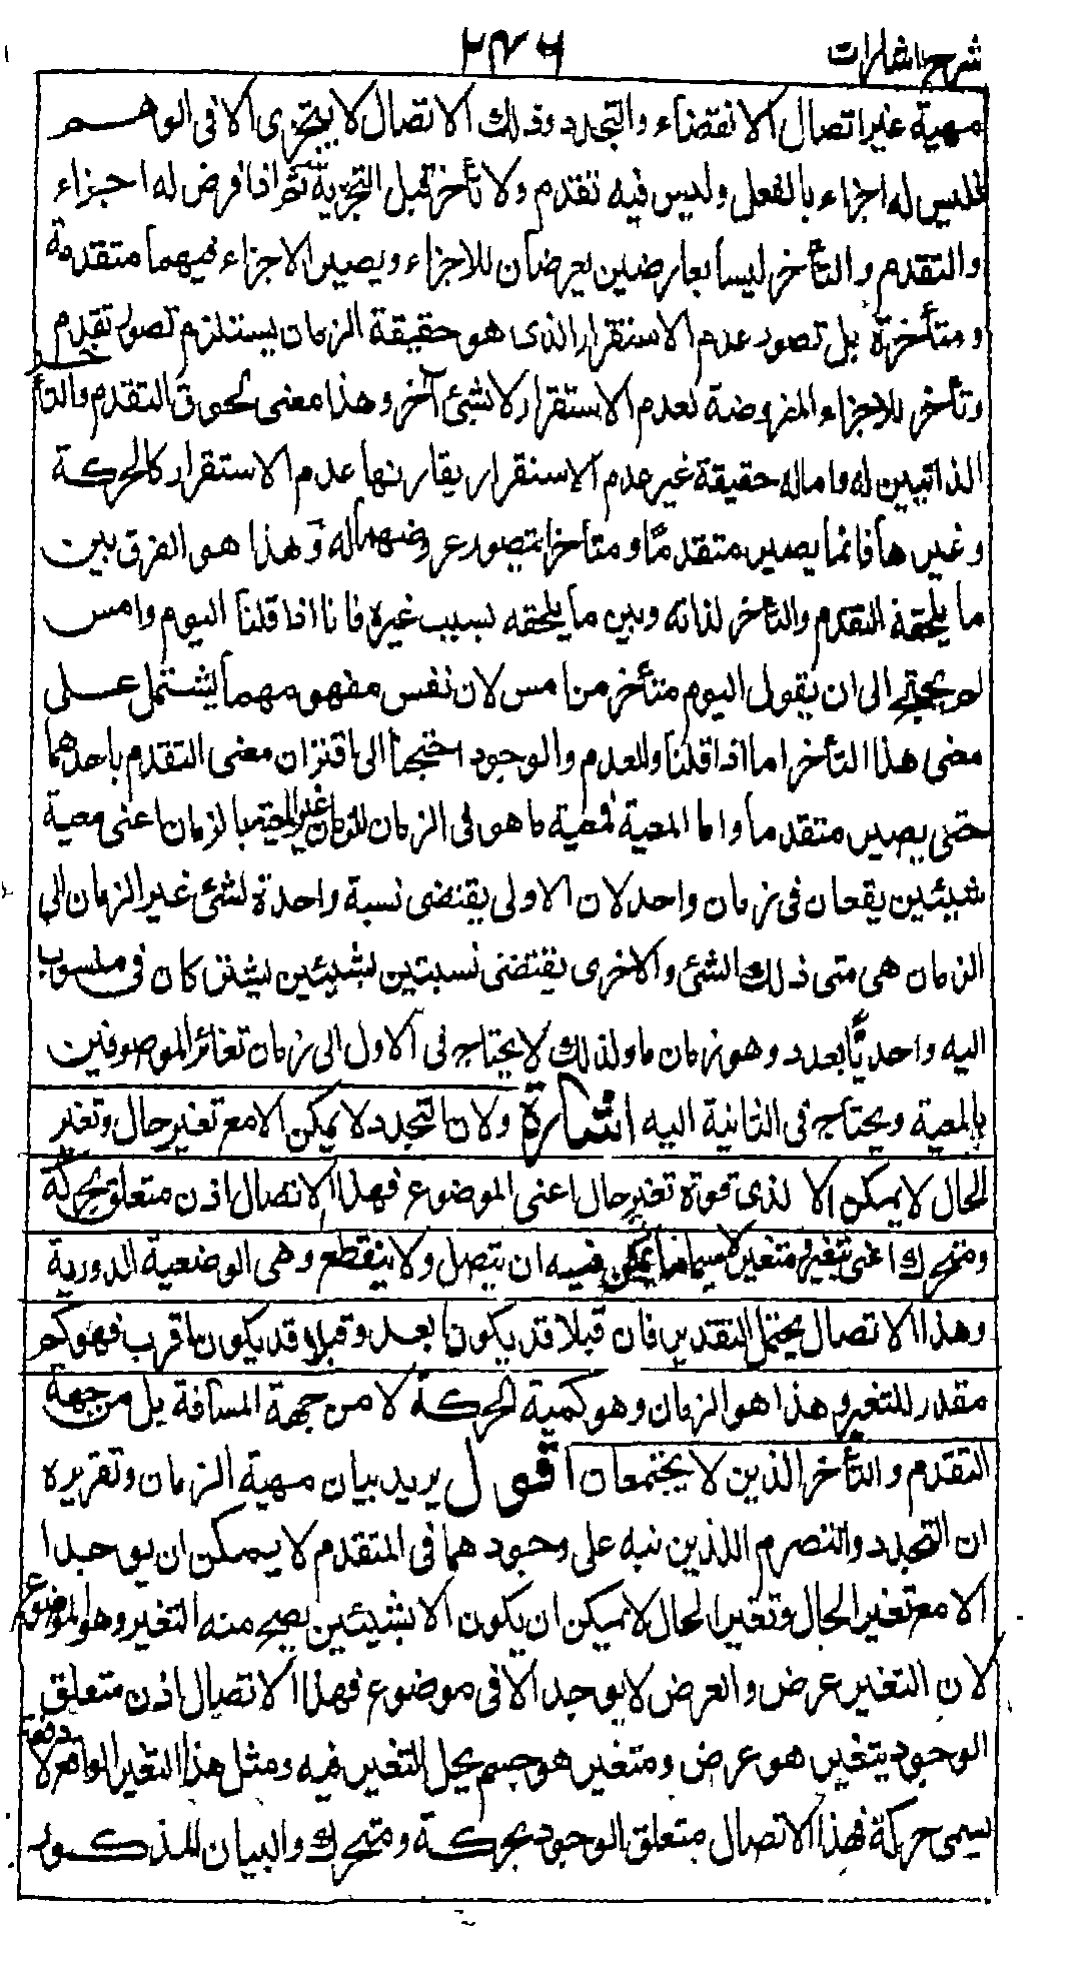 شرح اشارات
٢٤٦
مهية غير اتصال الانقضاء والتجدد وذلك الاتصال لا يتجزى الا فى الوهم
فليس له اجزاء بالفعل وليس فيه تقدم ولا تأخر قبل التجزية ثم اذا فرض له اجزاء
والتقدم والتأخر ليسا بعارضين يعرضان للاجزاء ويصير الاجزاء فيهما متقدمة
ومتأخرة بل تصور عدم الاستقرار الذى هو حقيقة الزمان يستلزم تصور تقدم
وتأخر للاجزاء المفروضة لعدم الاستقرار لا لشئ آخر وهذا معنى لحوق التقدم والتأخر
الذاتيين له واما له حقيقة غير عدم الاستقرار يقارنها عدم الاستقرار كالحركة
وغيرها فانما يصير متقدمًا ومتأخرا بتصور عروضهما له وهذا هو الفرق بين
ما يلحقه التقدم والتأخر لذاته وبين ما يلحقه لسبب غيره فانا اذا قلنا اليوم وامس
لم يحتج الى ان يقول اليوم متأخر من امس لان نفس مفهومهما يشتمل على
معنى هذا التأخر اما اذا قلنا العدم والوجود احتجنا الى اقتران معنى التقدم باحدهما
حتى يصير متقدما واما المعية فمعية ما هو فى الزمان للزمان غير المعية بالزمان اعنى معية
شيئين يقعان فى زمان واحد لان الاولى يقتضى نسبة واحدة لشئ غير الزمان الى
الزمان هى متى ذلك الشئ والاخرى يقتضى نسبتين لشيئين يشتركان فى منسوب
اليه واحد بالعدد وهو زمان ما ولذلك لا يحتاج فى الاول الى زمان تغائر الموصوفين
بالمعية ويحتاج فى الثانية اليه اشارة ولان التجدد لا يمكن الا مع تغير حال وتغير
الحال لا يمكن الا لذى قوة تغير حال اعنى الموضوع فهذا الاتصال اذن متعلق بحركة
ومتحرك اعنى بتغير ومتغير لاسيما ما يمكن فيه ان يتصل ولا ينقطع وهى الوضعية الدورية
وهذا الاتصال يحتمل التقدير فان قبلا قد يكون ابعد وقبلا قد يكون اقرب فهو كم
مقدر للتغير وهذا هو الزمان وهو كمية الحركة لا من جهة المسافة بل من جهة
التقدم والتأخر الذين لا يجتمعان اقول يريد بيان مهية الزمان وتقريره
ان التجدد والتصرم اللذين نبه على وجودهما فى المتقدم لا يمكن ان يوجدا
الا مع تغير الحال وتغير الحال لا يمكن ان يكون الا بشيئين يصح منه التغير وهو الموضوع
لان التغير عرض والعرض لا يوجد الا فى موضوع فهذا الاتصال اذن متعلق
الوجود بتغير هو عرض ومتغير هو جسم يحل التغير فيه ومثل هذا التغير الواقع لا دفعة
يسمى حركة فهذا الاتصال متعلق الوجود بحركة ومتحرك والبيان المذكور